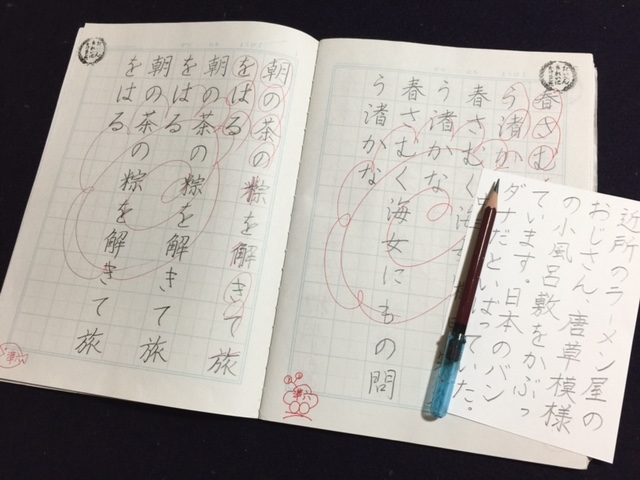 近所のラーメン屋の
おじさん、唐草模様
の小風呂敷をかぶっ
ています。日本のバン
ダナだといばっていた。
春さむ
う渚か
春さむく海
う渚かな
春さむく海女にもの問
う渚かな
準六
朝の茶の粽を解きて旅
をはる
朝の茶の粽を解きて旅
をはる
朝の茶の粽を解きて旅
をはる
準六